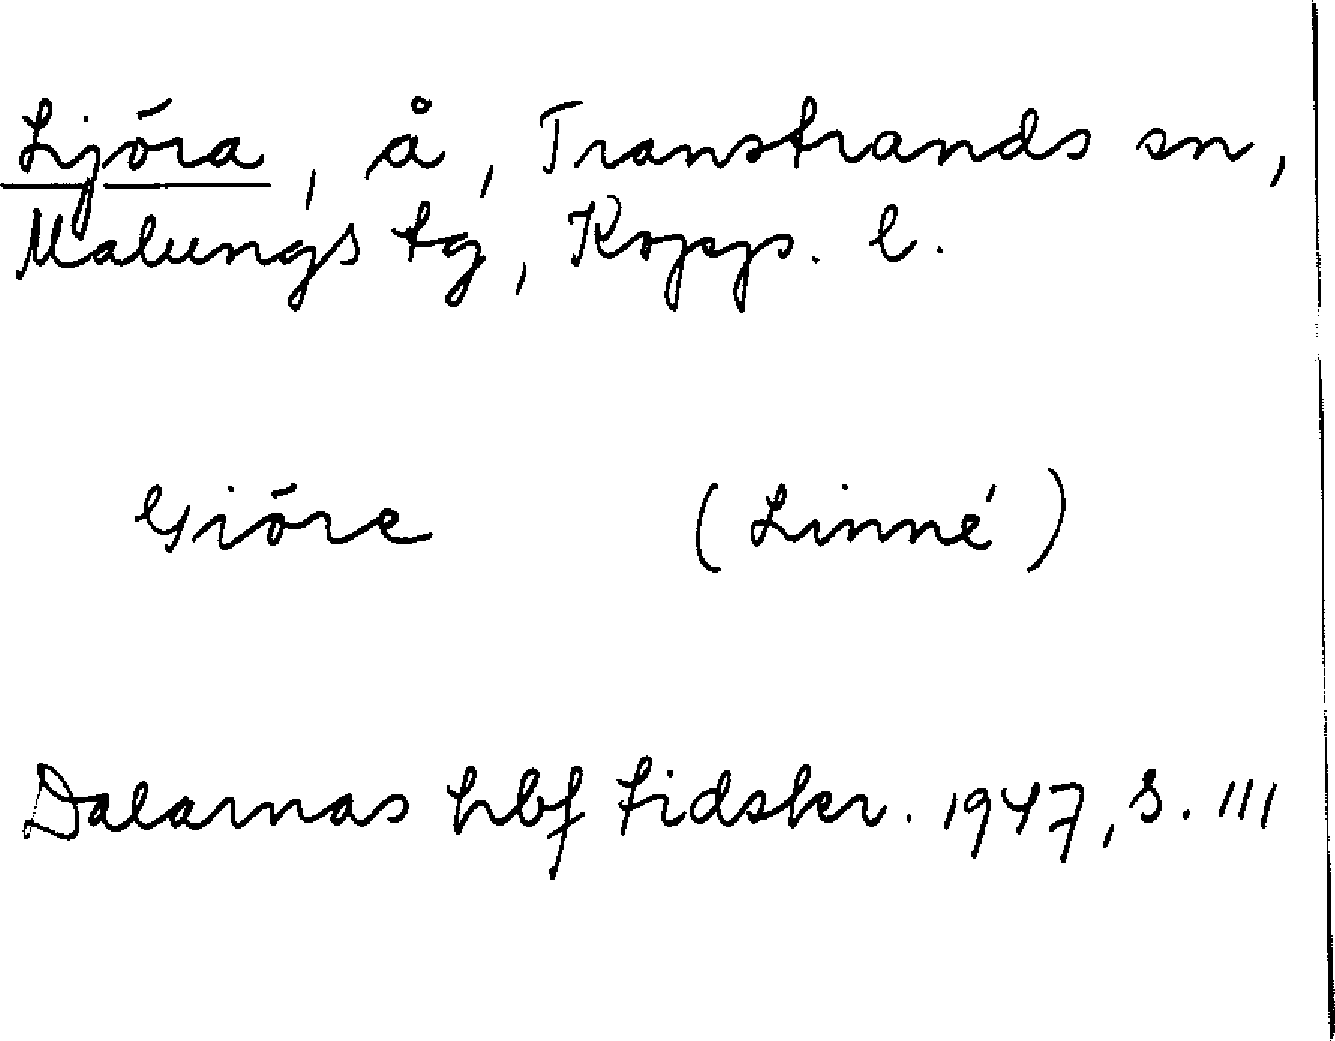 Ljöra, å, Transtrands sn,
Malungs tg, Kopps. l.
Giöre (Linné)
Dalarnas hbf tidskr. 1947, s. 111